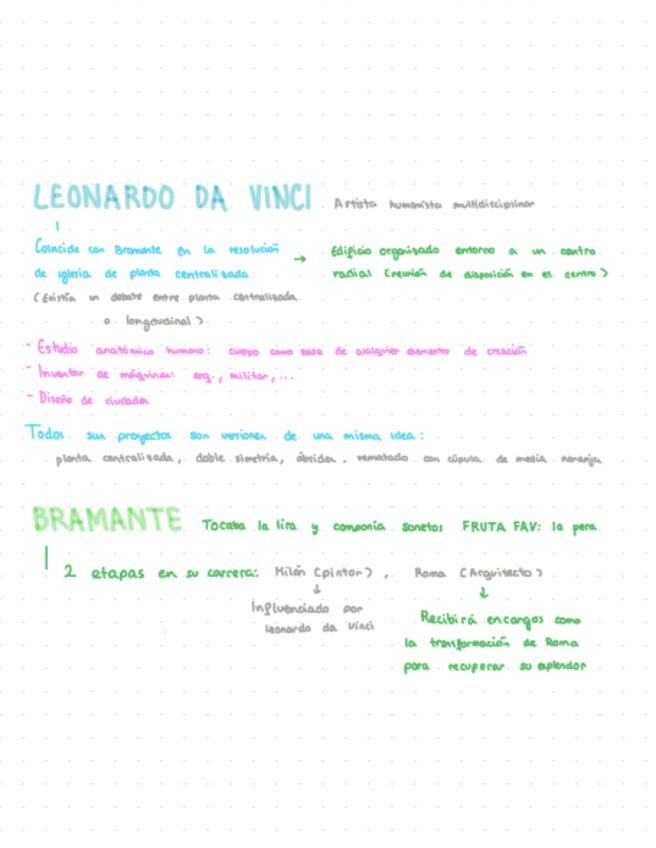 LEONARDO DA VINCI Artista humanista multidisciplinar
Coincide con Bramante en la resolución → Edificio organizado entorno a un centro
de iglesia de planta centralizada radial (reunión de disposición en el centro)
(Existía un debate entre planta centralizada
o longitudinal)
- Estudio anatómico humano: cuerpo como base de cualquier elemento de creación
- Inventor de máquinas: arq., militar,...
- Diseño de ciudades
Todos sus proyectos son versiones de una misma idea:
planta centralizada, doble simetría, ábsides, rematado con cúpula de media naranja
BRAMANTE Tocaba la lira y componía sonetos FRUTA FAV: la pera
2 etapas en su carrera: Milán (pintor), Roma (Arquitecto)
↓ ↓
Influenciado por Recibirá encargos como
leonardo da Vinci la transformación de Roma
para recuperar su esplendor